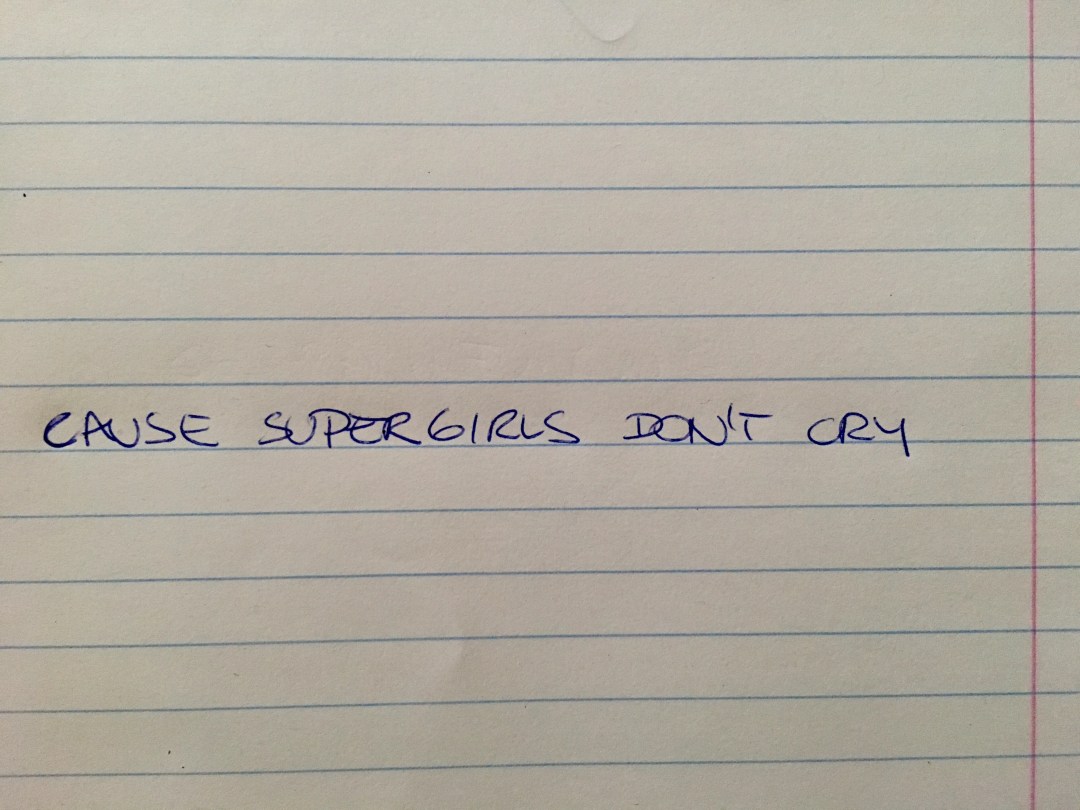 CAUSE SUPERGIRLS DON'T CRY